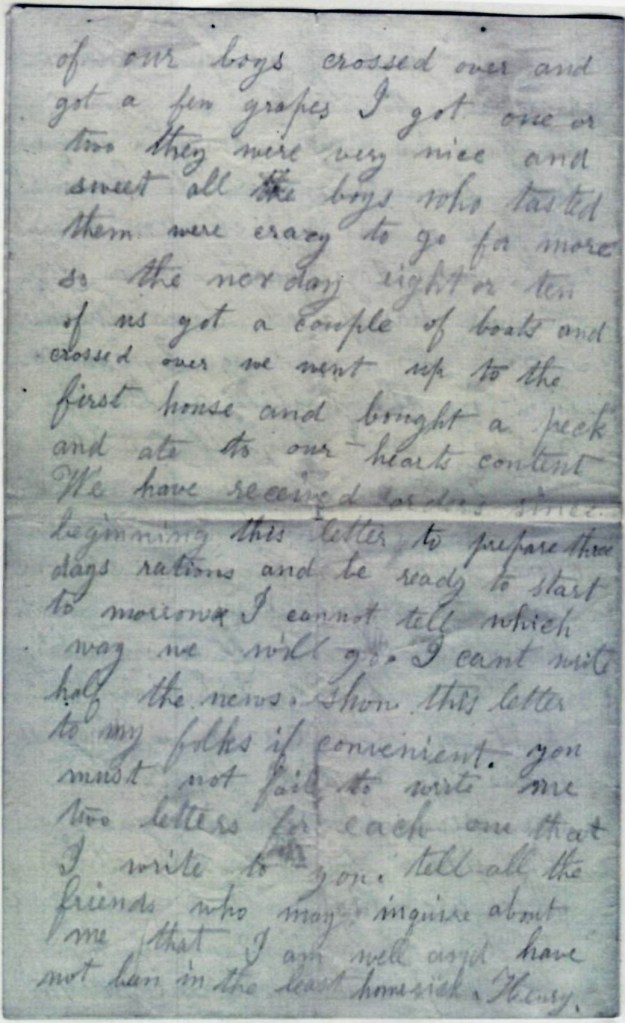 of our boys crossed over and
got a few grapes I got one or
two they were very nice and
sweet all the boys who tasted
them were crazy to go for more
so the nex day eight or ten
of us got a couple of boats and
crossed over we went up to the
first house and bought a peck
and ate to our hearts content
We have received orders since
beginning this letter to prepare three
days rations and be ready to start
to morrow I cannot tell which
way we will go. I cant write
half the news. show this letter
to my folks if convenient. you
must not fail to write me
two letters for each one that
I write to you. tell all the
friends who may inquire about
me that I am well and have
not been in the least homesick. Henry.